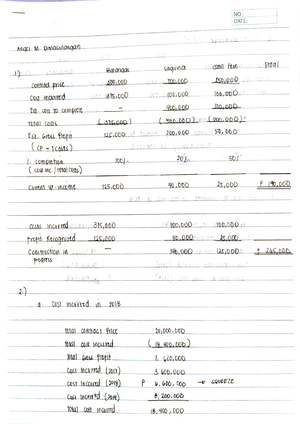 NO.:
DATE:
Angel M. Dimaculangan
1.)
Batangas Laguna Total
Contract price 500,000 700,000 250,000
Cost incurred 375,000 100,000 100,000
Est. cost to complete - 400,000 100,000
Total costs (375,000) (500,000) (200,000)
Est. Gross Profit 125,000 200,000 50,000
(CP - TCosts)
% completion 100% 20% 50%
(cost inc. / total costs)
Current yr. income 125,000 40,000 25,000 ₱ 190,000
Costs incurred 375,000 100,000 100,000
Profit Recognized 125,000 40,000 25,000
Construction in - 140,000 125,000 ₱ 265,000
progress
2.)
a. Cost incurred in 2018
Total contract price 20,000,000
Total cost incurred
Total Gross Profit 1,600,000
Cost Incurred (2017) 3,600,000
Cost Incurred (2018) ₱ 6,600,000 → SQUEEZE
Cost Incurred (2019) 8,200,000
Total cost incurred 18,400,000